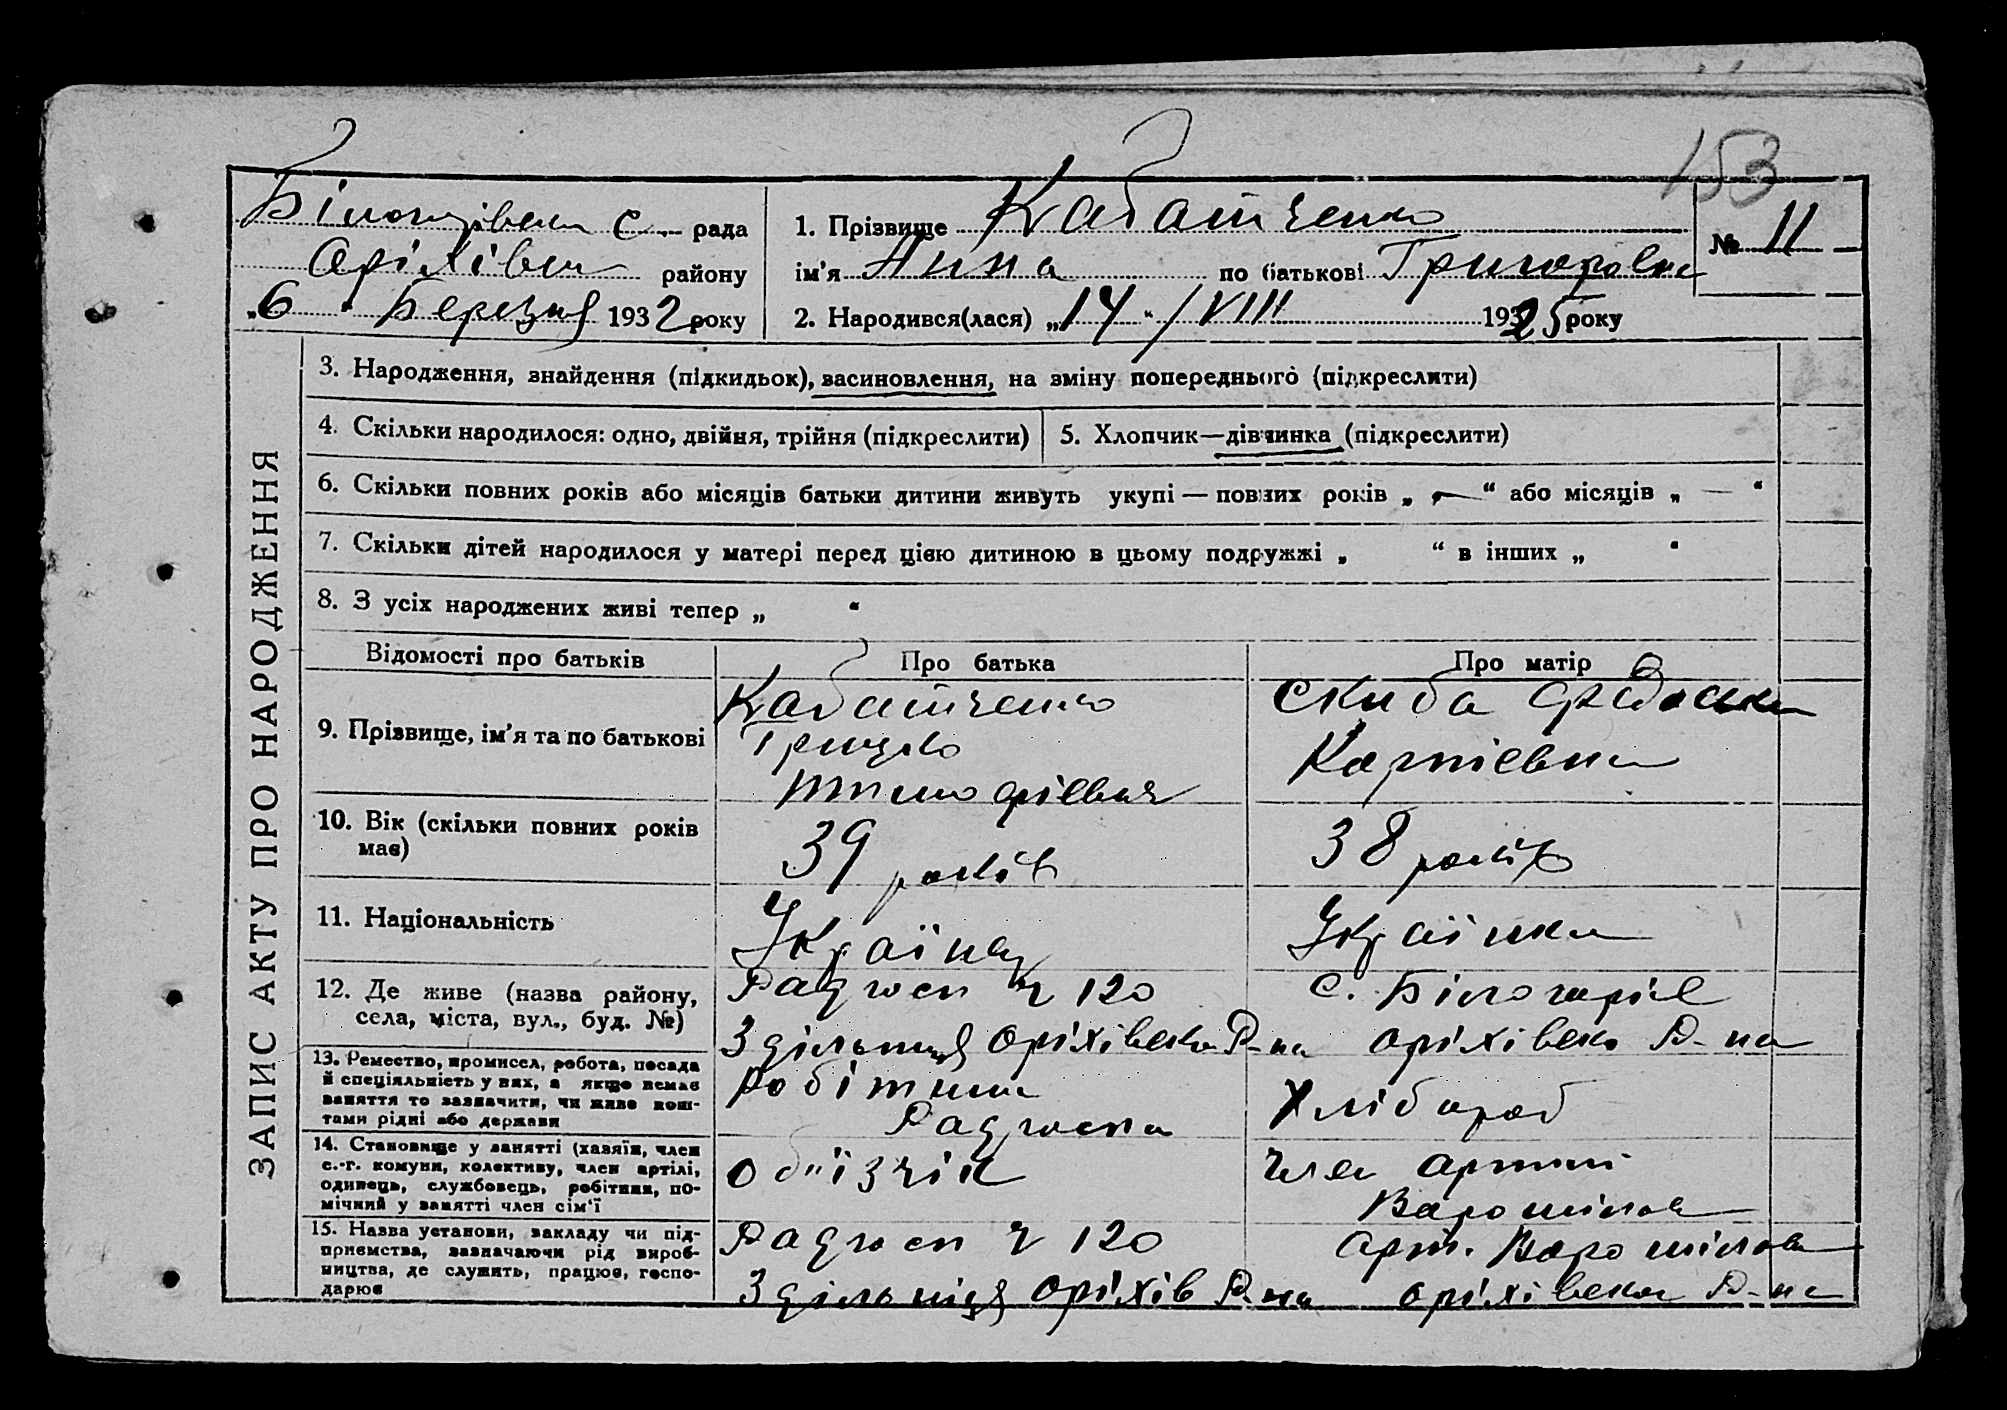 153
Білогорівська с. рада
Оріхівськ району
„6“ Березня 1932 року
1. Прізвище Кабатченко
№ 11
ім'я Анна по батькові Григоровна
2. Народився(лася) „14“ /VIII 1925 року
ЗАПИС АКТУ ПРО НАРОДЖЕННЯ
3. Народження, знайдення (підкидьок), васиновлення, на зміну попереднього (підкреслити)
4. Скільки народилося: одно, двійня, трійня (підкреслити)
5. Хлопчик—дівчинка (підкреслити)
6. Скільки повних років або місяців батьки дитини живуть укупі — повних років „ — “ або місяців „ — “
7. Скільки дітей народилося у матері перед цією дитиною в цьому подружжі „ “ в інших „ “
8. З усіх народжених живі тепер „ “
Відомості про батьків
Про батька
Про матір
9. Прізвище, ім'я та по батькові
Кабатченко
Грицько
Тимофієвич
Скиба Федоська
Карпієвна
10. Вік (скільки повних років
має)
39 років
38 років
11. Національність
Українец
Українка
12. Де живе (назва району,
села, міста, вул., буд. №)
Радгосп ч 120
3 дільниця Оріхівська Р-на
с. Білогоріє
Оріхівсько Р-на
13. Ремество, промисел, робота, посада
й спеціяльність у них, а якщо немає
заняття то зазначити, чи живе кош-
тами рідні або держави
Робітник
Радгоспа
Хлібороб
14. Становище у занятті (хазяїн, член
с.-г. комуни, колективу, член артілі,
одинець, службовець, робітник, по-
мічний у занятті член сім'ї
Об'їзчік
Член Артілі
Ворошілова
15. Назва установи, закладу чи під-
приємства, зазначаючи рід вироб-
ництва, де служить, працює, госпо-
дарює
Радгосп ч 120
3 дільниця Оріхів Р-на
Арт. Ворошілова
Оріхівська Р-на